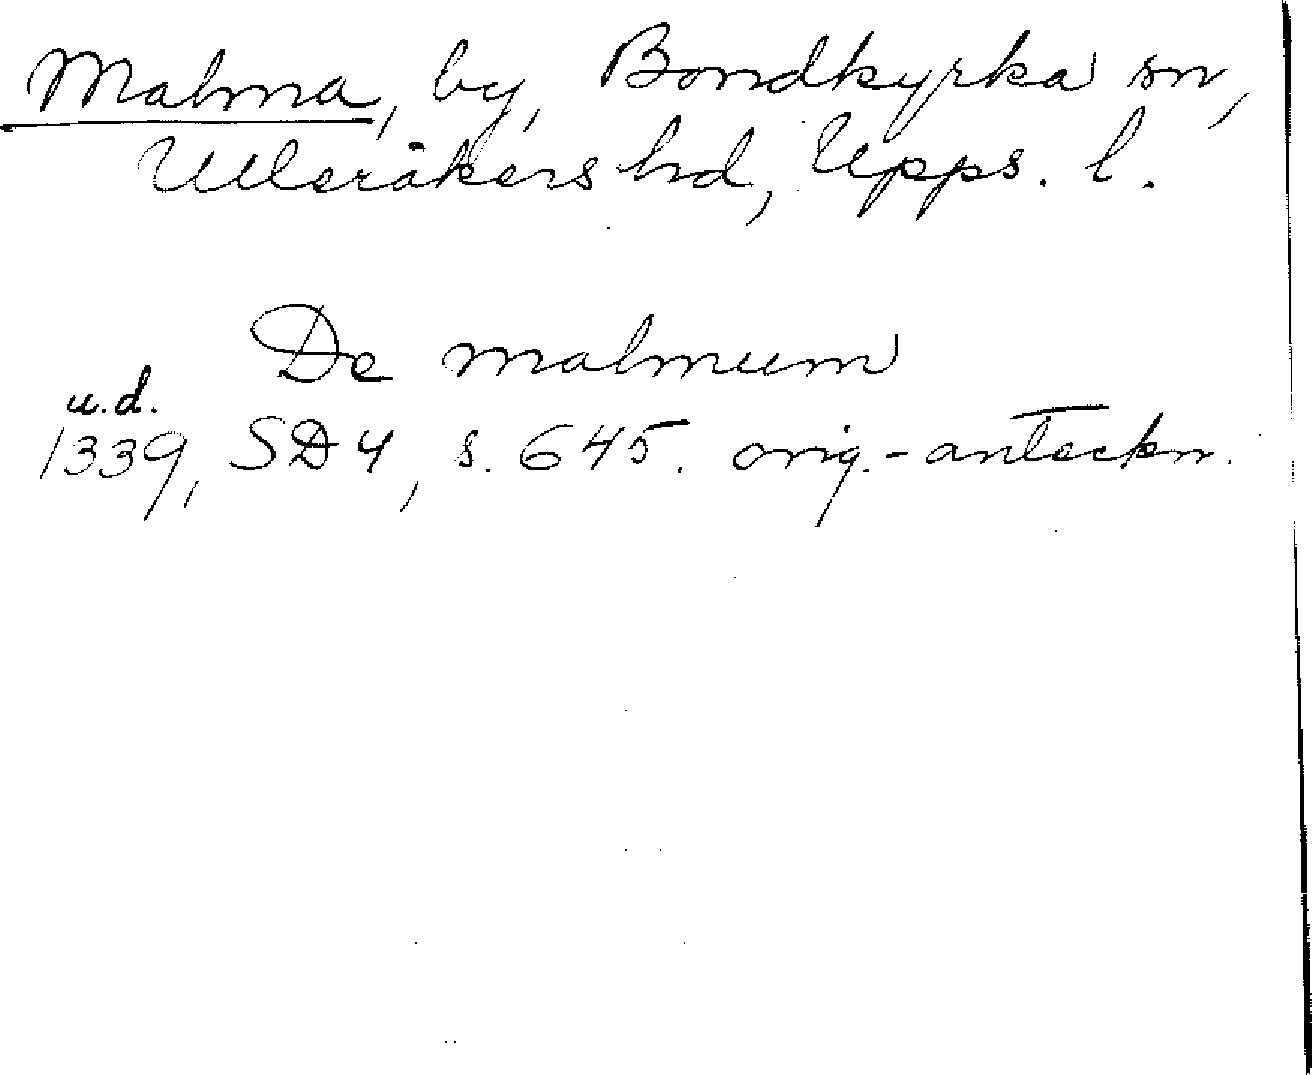 Malma, by, Bondkyrka sn,
Ulleråkers hd, Upps. l.
De malmum
u.d.
1339, SD 4, s. 645. orig.-anteckn.